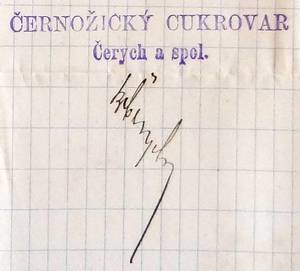 ČERNOŽICKÝ CUKROVAR
Čerych a spol.